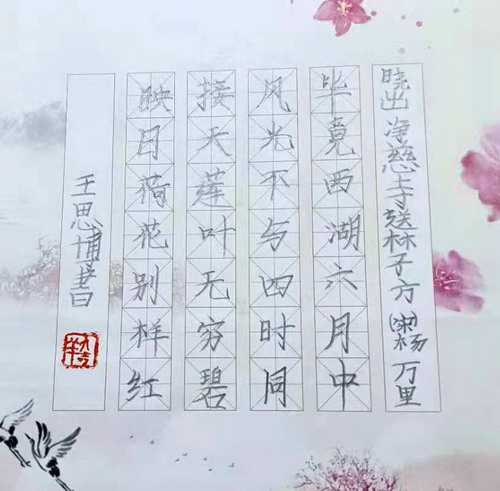 晓出净慈寺送林子方(宋)杨万里
毕竟西湖六月中
风光不与四时同
接天莲叶无穷碧
映日荷花别样红
王思博书